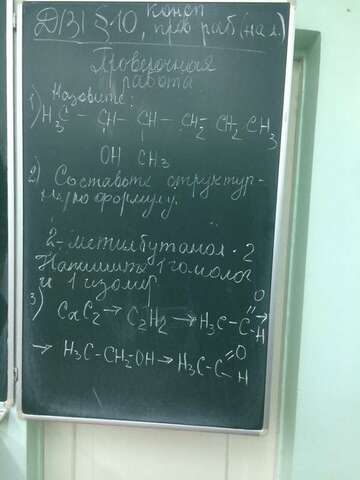 Д/З § 10, консп
пров раб (на л.)
Проверочная
работа
1) Назовите:
H₃C - CH - CH - CH₂ CH₂ CH₃
OH CH₃
2) Составьте структур-
ную формулу.
2-метилбутанол-2
Напишите 1 гомолог
и 1 изомер
3) CaC₂ → C₂H₂ → H₃C-C=O H →
→ H₃C-CH₂-OH → H₃C-C=O H